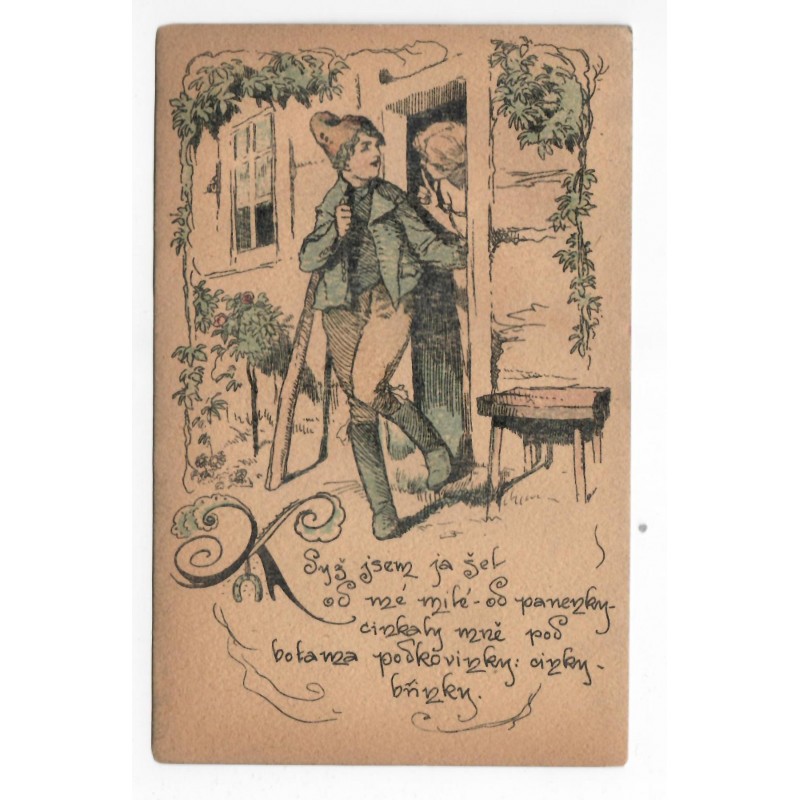 Když jsem ja šel
od mé milé - od panenky -
cinkaly mně pod
botama podkövinky: cinky -
břinky.